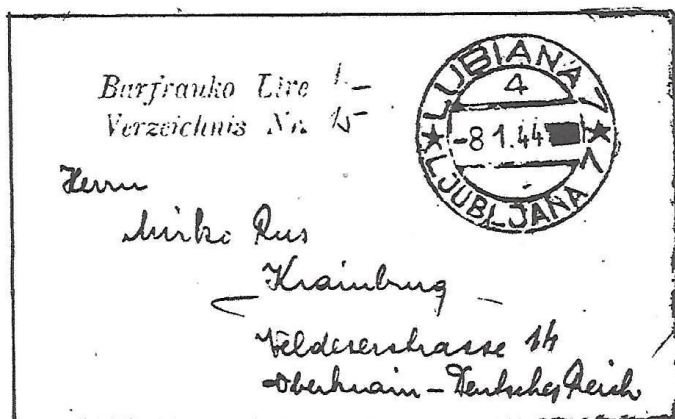 Barfranko Lire 1.–
Verzeichnis Nr. 15
LUBIANA 7
4
-8 1.44
LJUBLJANA 7
Herrn
Mirko Rus
Krainburg
Veldeserstrasse 14
Oberkrain – Deutsches Reich